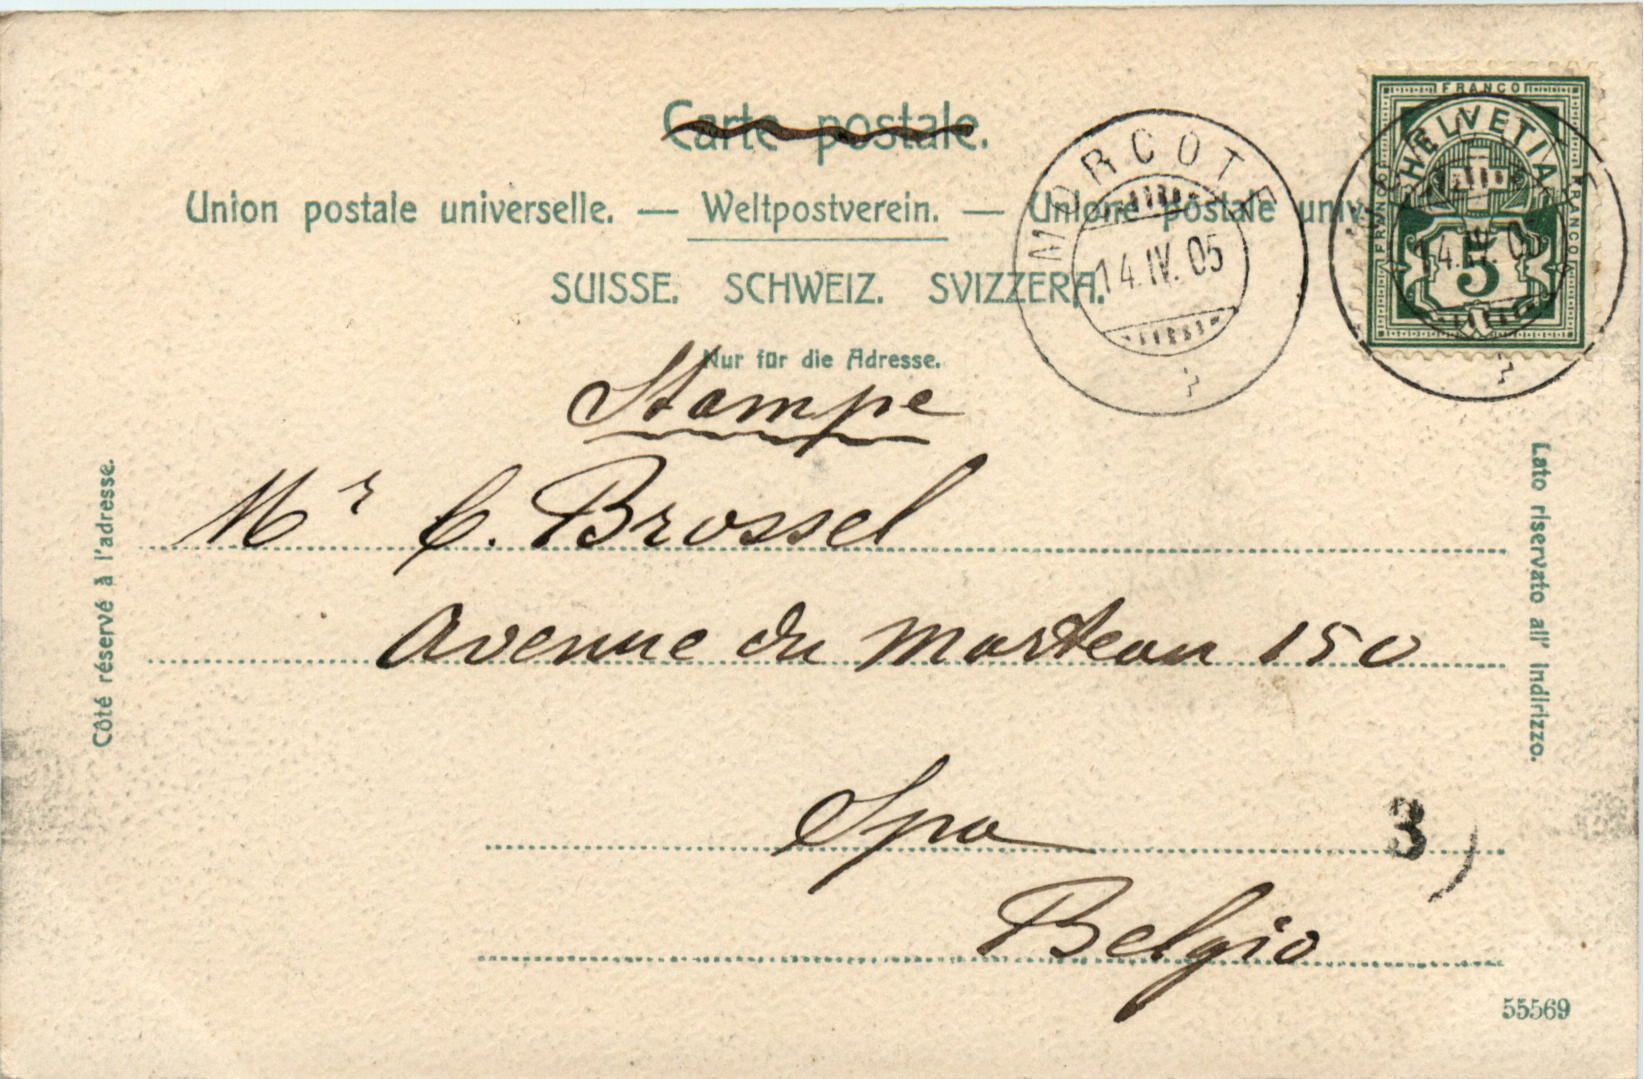 Carte postale.
Union postale universelle. — Weltpostverein. — Unione postale univ
SUISSE. SCHWEIZ. SVIZZERA.
Nur für die Adresse.
FRANCO
HELVETIA
FRANCO
FRANCO
5
MORCOTE
14.IV.05
14.IV.05
Stampe
Mr C. Brossel
Avenue du Marteau 150
Spa
Belgio
3
Côté réservé à l'adresse.
Lato riservato all' indirizzo.
55569